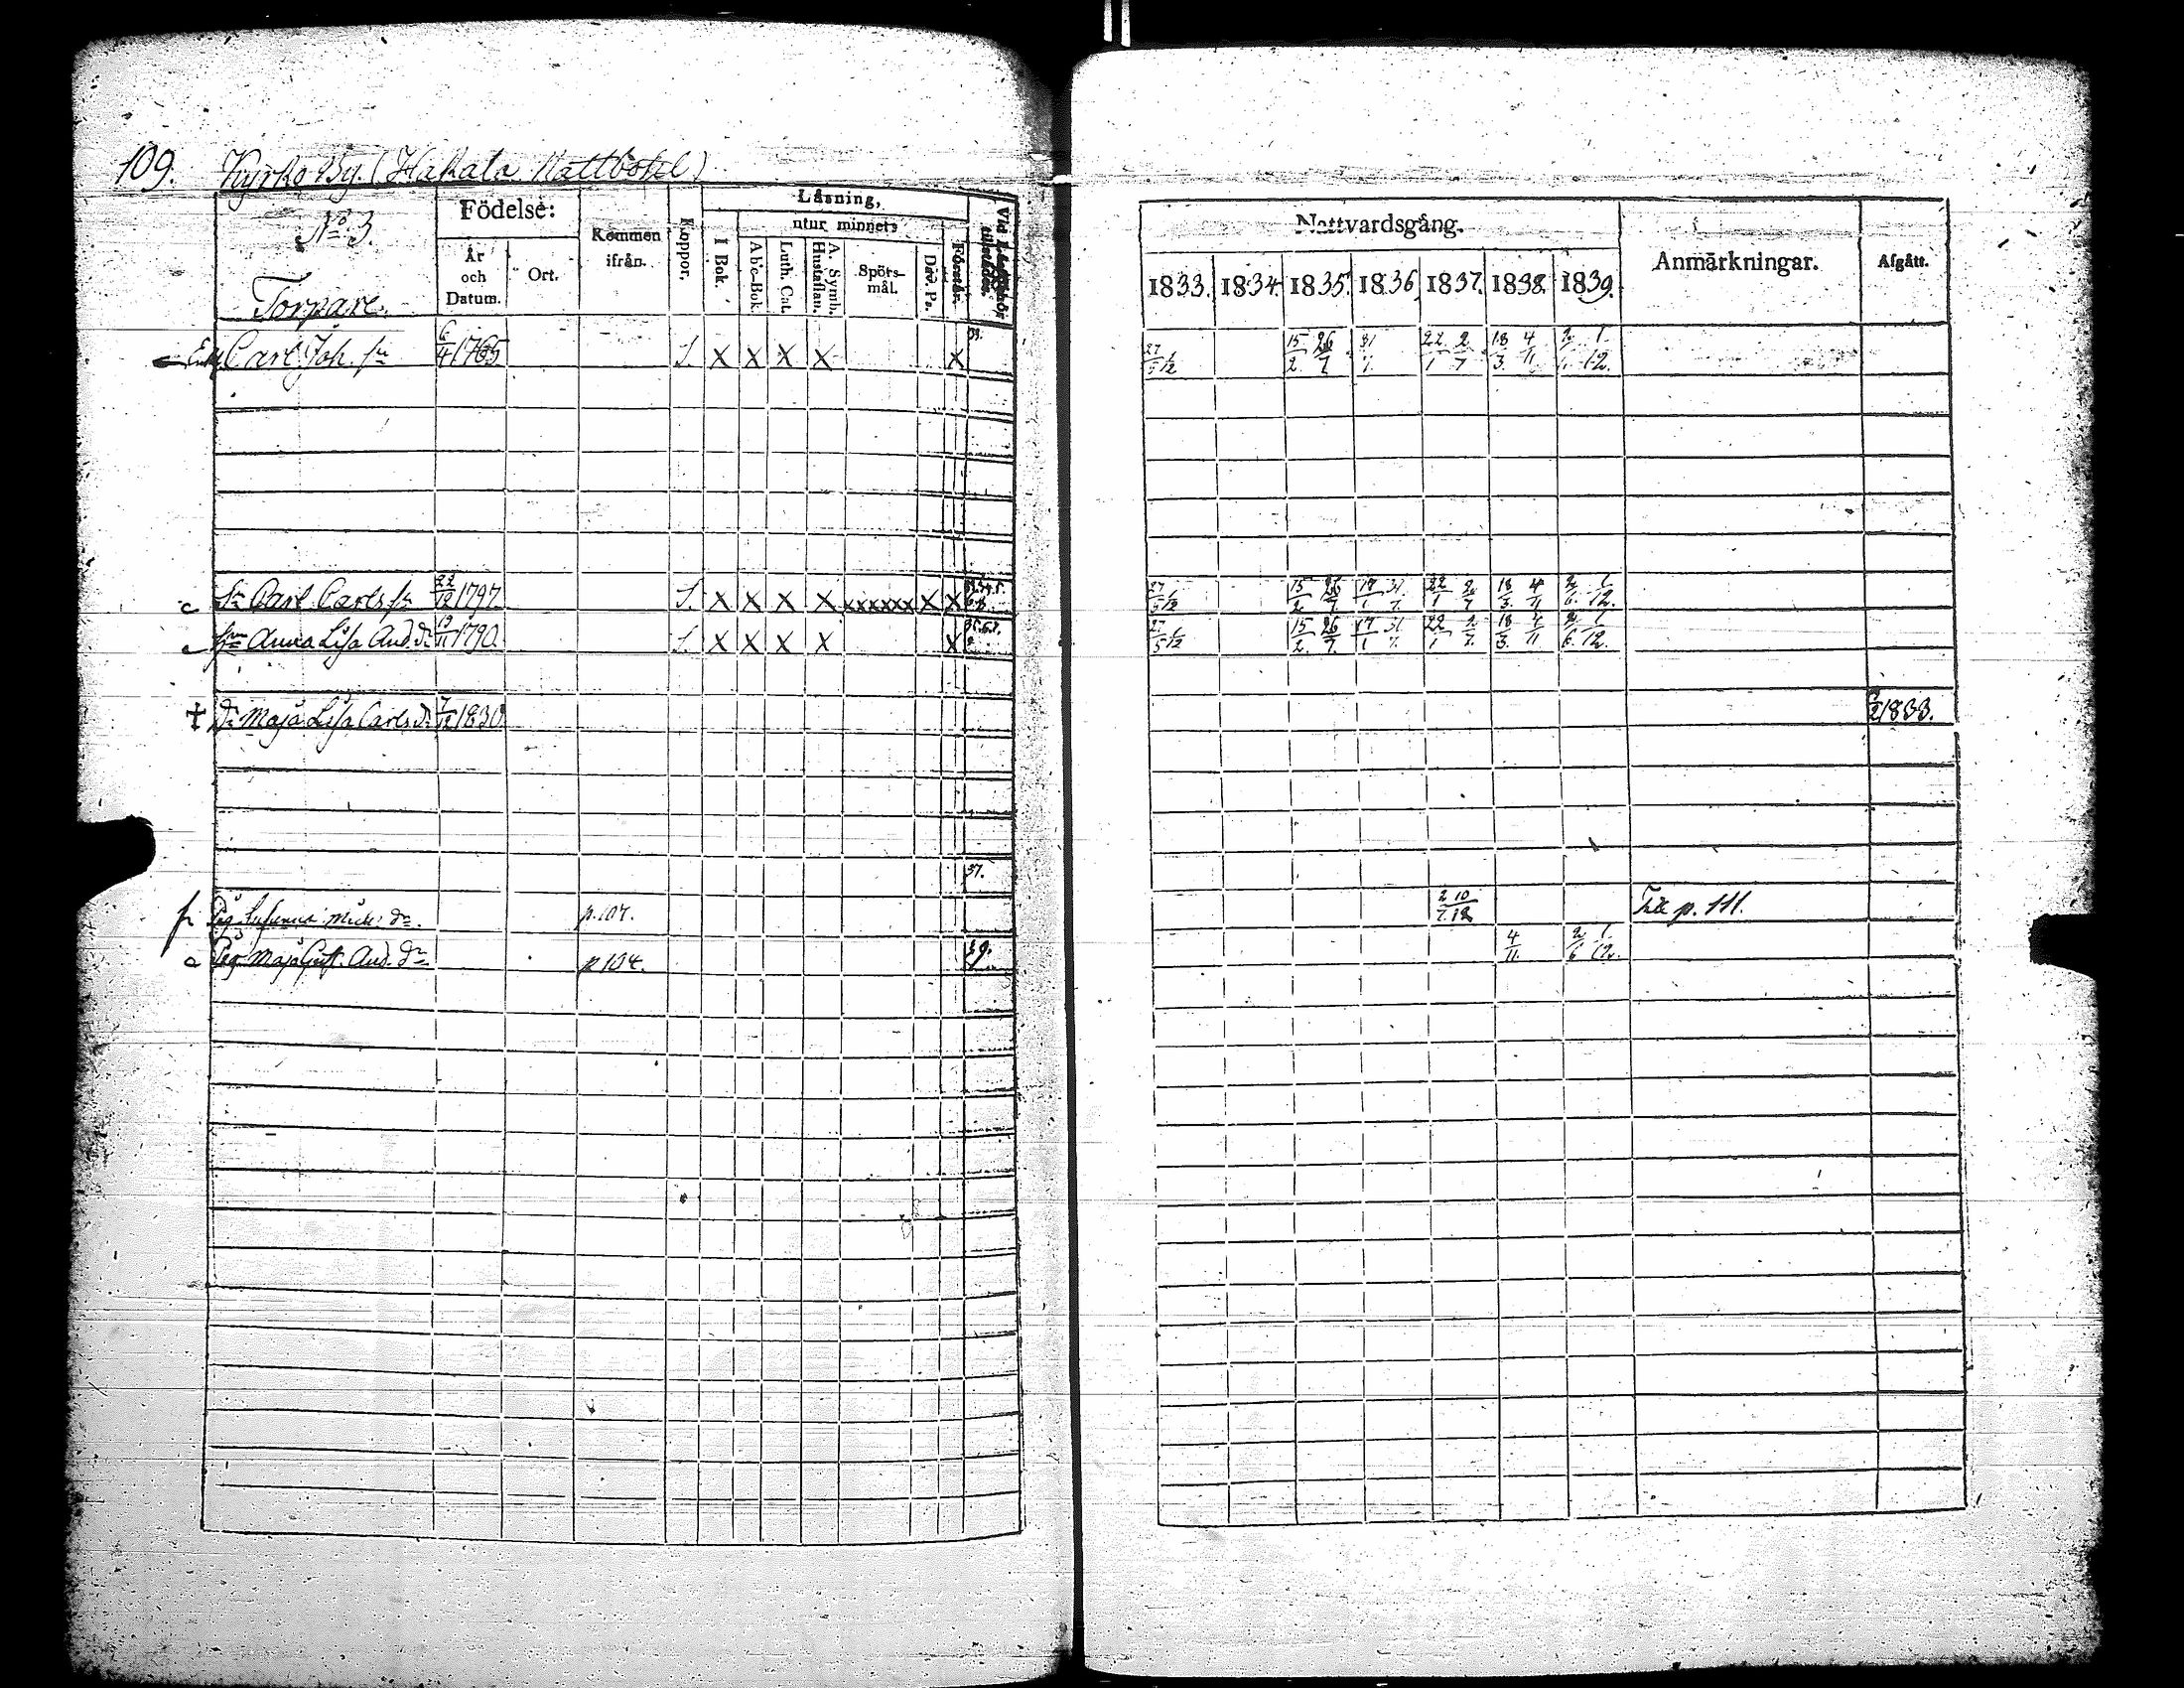 109. Kyrko By. (Hakala Nattbohl)
No 3.
Torpare.
Födelse:
År och Datum.
Ort.
Kommen ifrån.
Koppor.
Läsning,
I Bok.
utur minnet
Abc-Bok.
Luth. Cat.
A. Symb. Hustaflan.
Spörs-mål.
Dav. Ps.
Förstår.
Enkl Carl Joh. sn 6/4 1765. S. X X X X X 39.
c Sn Carl Carls sn 22/12 1797. S. X X X X xxxxxx X X
c hu Anna Lisa And. dr 19/11 1790. S. X X X X X
† dr Maja Lisa Carls dr 7/12 1830.
37.
p. 107.
a Pig. Maja Gust. And. dr p 104. 39.
Nattvardsgång.
Anmärkningar.
Afgått.
1833. 1834. 1835. 1836. 1837. 1838. 1839.
27/5 1/12 15/2 26/7 31/7 22/1 2/7 18/3 4/11 2/6 1/12
27/5 1/12 15/2 26/7 17/1 31/7 22/1 2/7 18/3 4/11 2/6 1/12
27/5 1/12 15/2 26/7 17/1 31/7 22/1 2/7 18/3 4/11 2/6 1/12
1833.
2/7 10/12 Till p. 111.
4/11 2/6 1/12